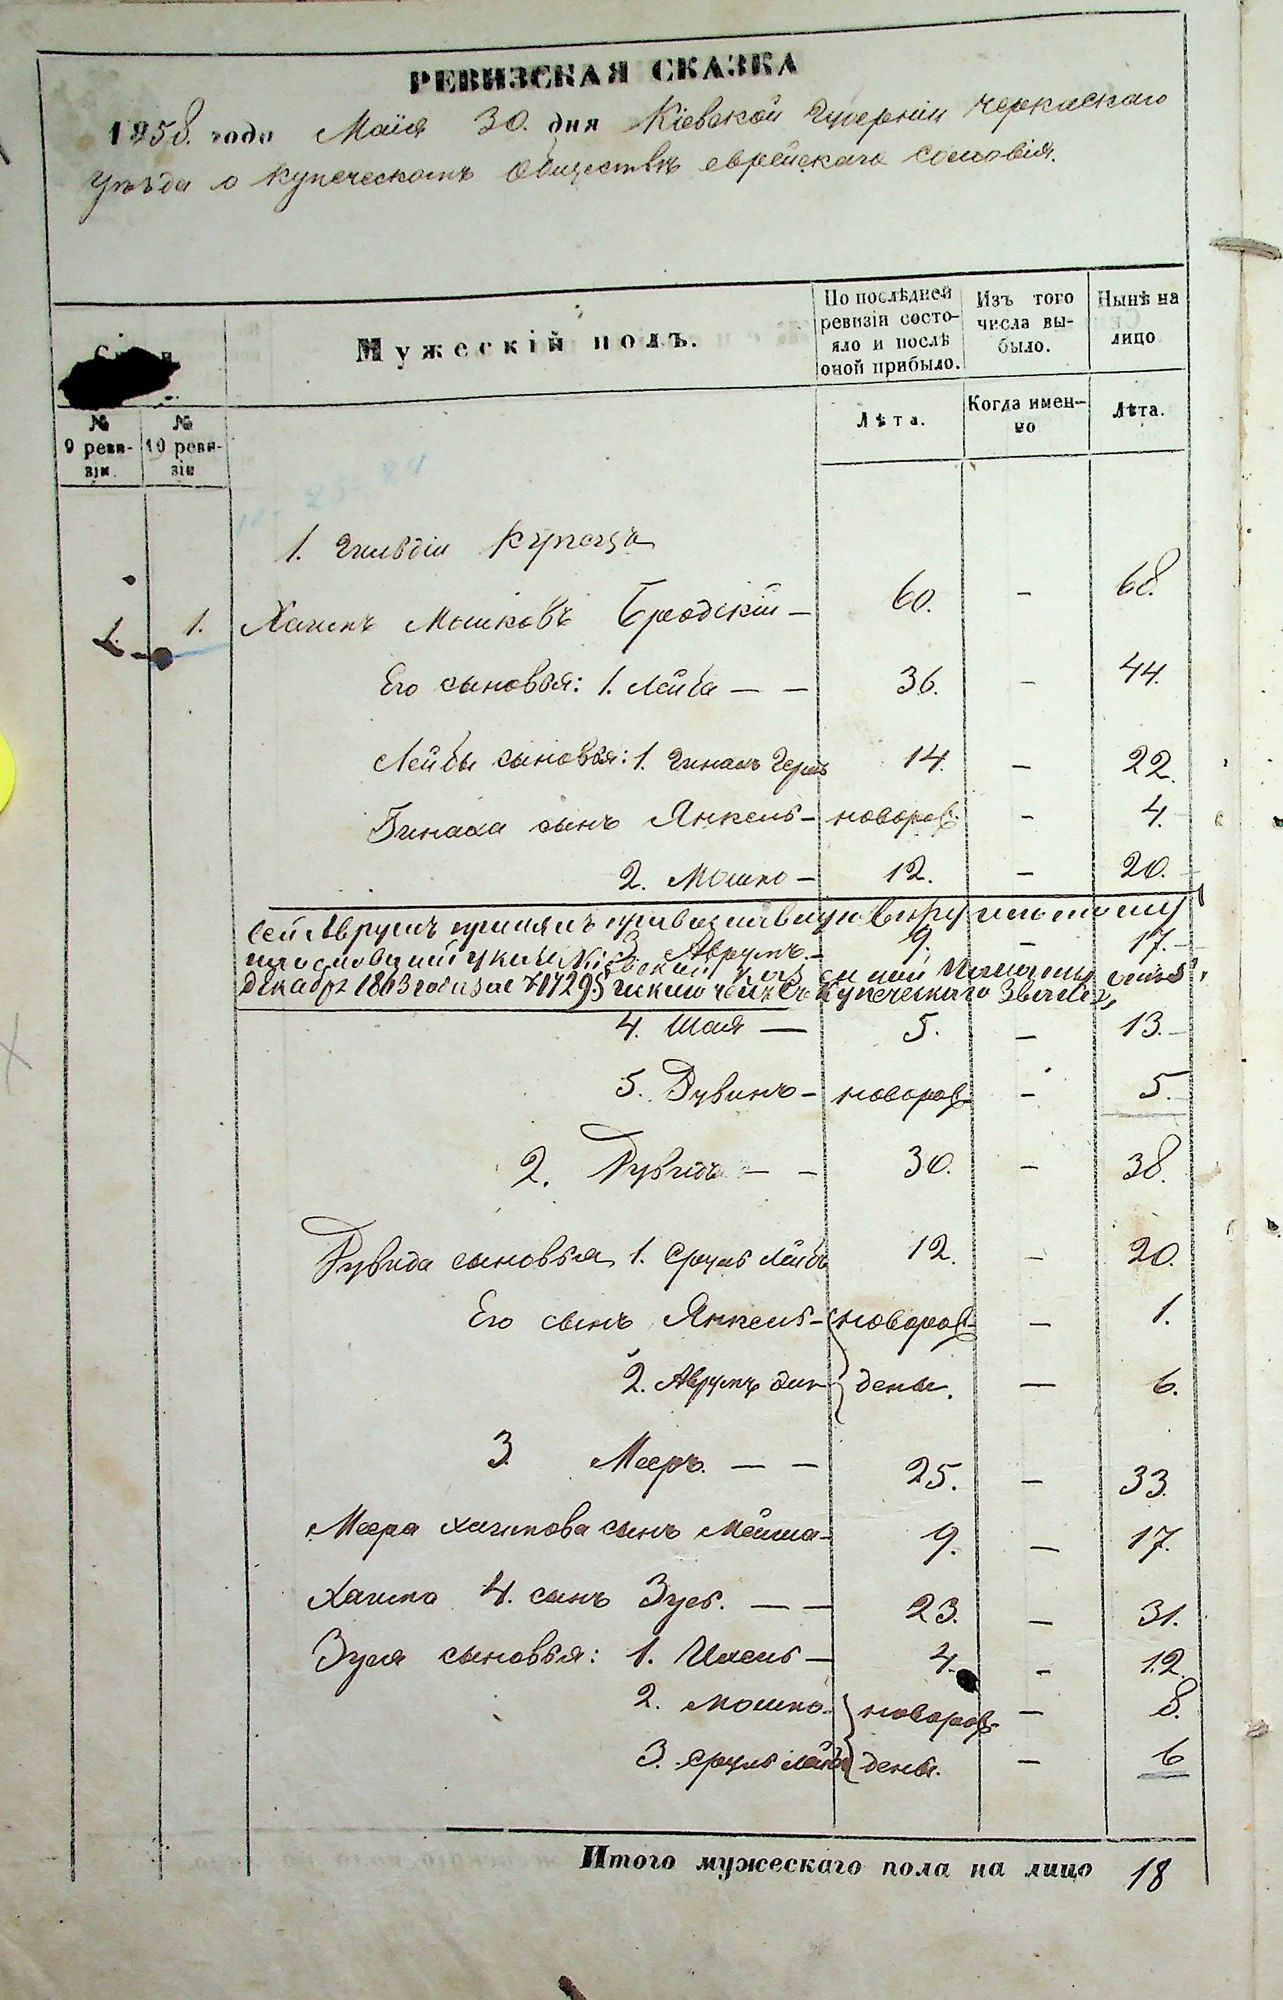 РЕВИЗСКАЯ СКАЗКА
1858. года Маія 30. дня Кіевской Губерніи Черкаскаго
Уѣзда о купеческомъ Обществѣ еврейскаго сословія.
Мужескій полъ.
По послѣдней ревизіи состояло и послѣ оной прибыло.
Изъ того числа выбыло.
Нынѣ на лицо
№ 9 ревизіи.
№ 10 ревизіи
Лѣта.
Когда именно
Лѣта.
1. Гильдіи Купецъ
1. 1. Хаимъ Мошковъ Бродскій — 60. — 68.
Его сыновья: 1. Лейба — — 36. — 44.
Лейбы сыновья: 1. Гинахъ Герш 14. — 22.
Гинаха сынъ Янкель — новорож. — 4.
2. Мошко — 12. — 20.
Сей Аврумъ принялъ православную вѣру и по тому
3 Аврумъ — 9. — 17.
Казенной Палаты отъ
Декабря 1863 года за № 17295 исключенъ съ Купеческаго Званія
4. Шая — 5. — 13.
5. Дувинъ — новорож — 5.
2. Дувидъ — — 30. — 38.
Дувида сыновья 1. Сруль Лейбъ 12. — 20.
Его сынъ Янкель — новорож — 1.
2. Аврумъ дены. — 6.
3 Мееръ. — — 25. — 33.
Меера Хаимова сынъ Мейша — 9. — 17.
Хаима 4. сынъ Зусь. — — 23. — 31.
Зуся сыновья: 1. Ихель — 4. — 12.
2. Мошко — новорож — 8.
3. Сруль Лейба дены. — 6
Итого мужескаго пола на лицо 18